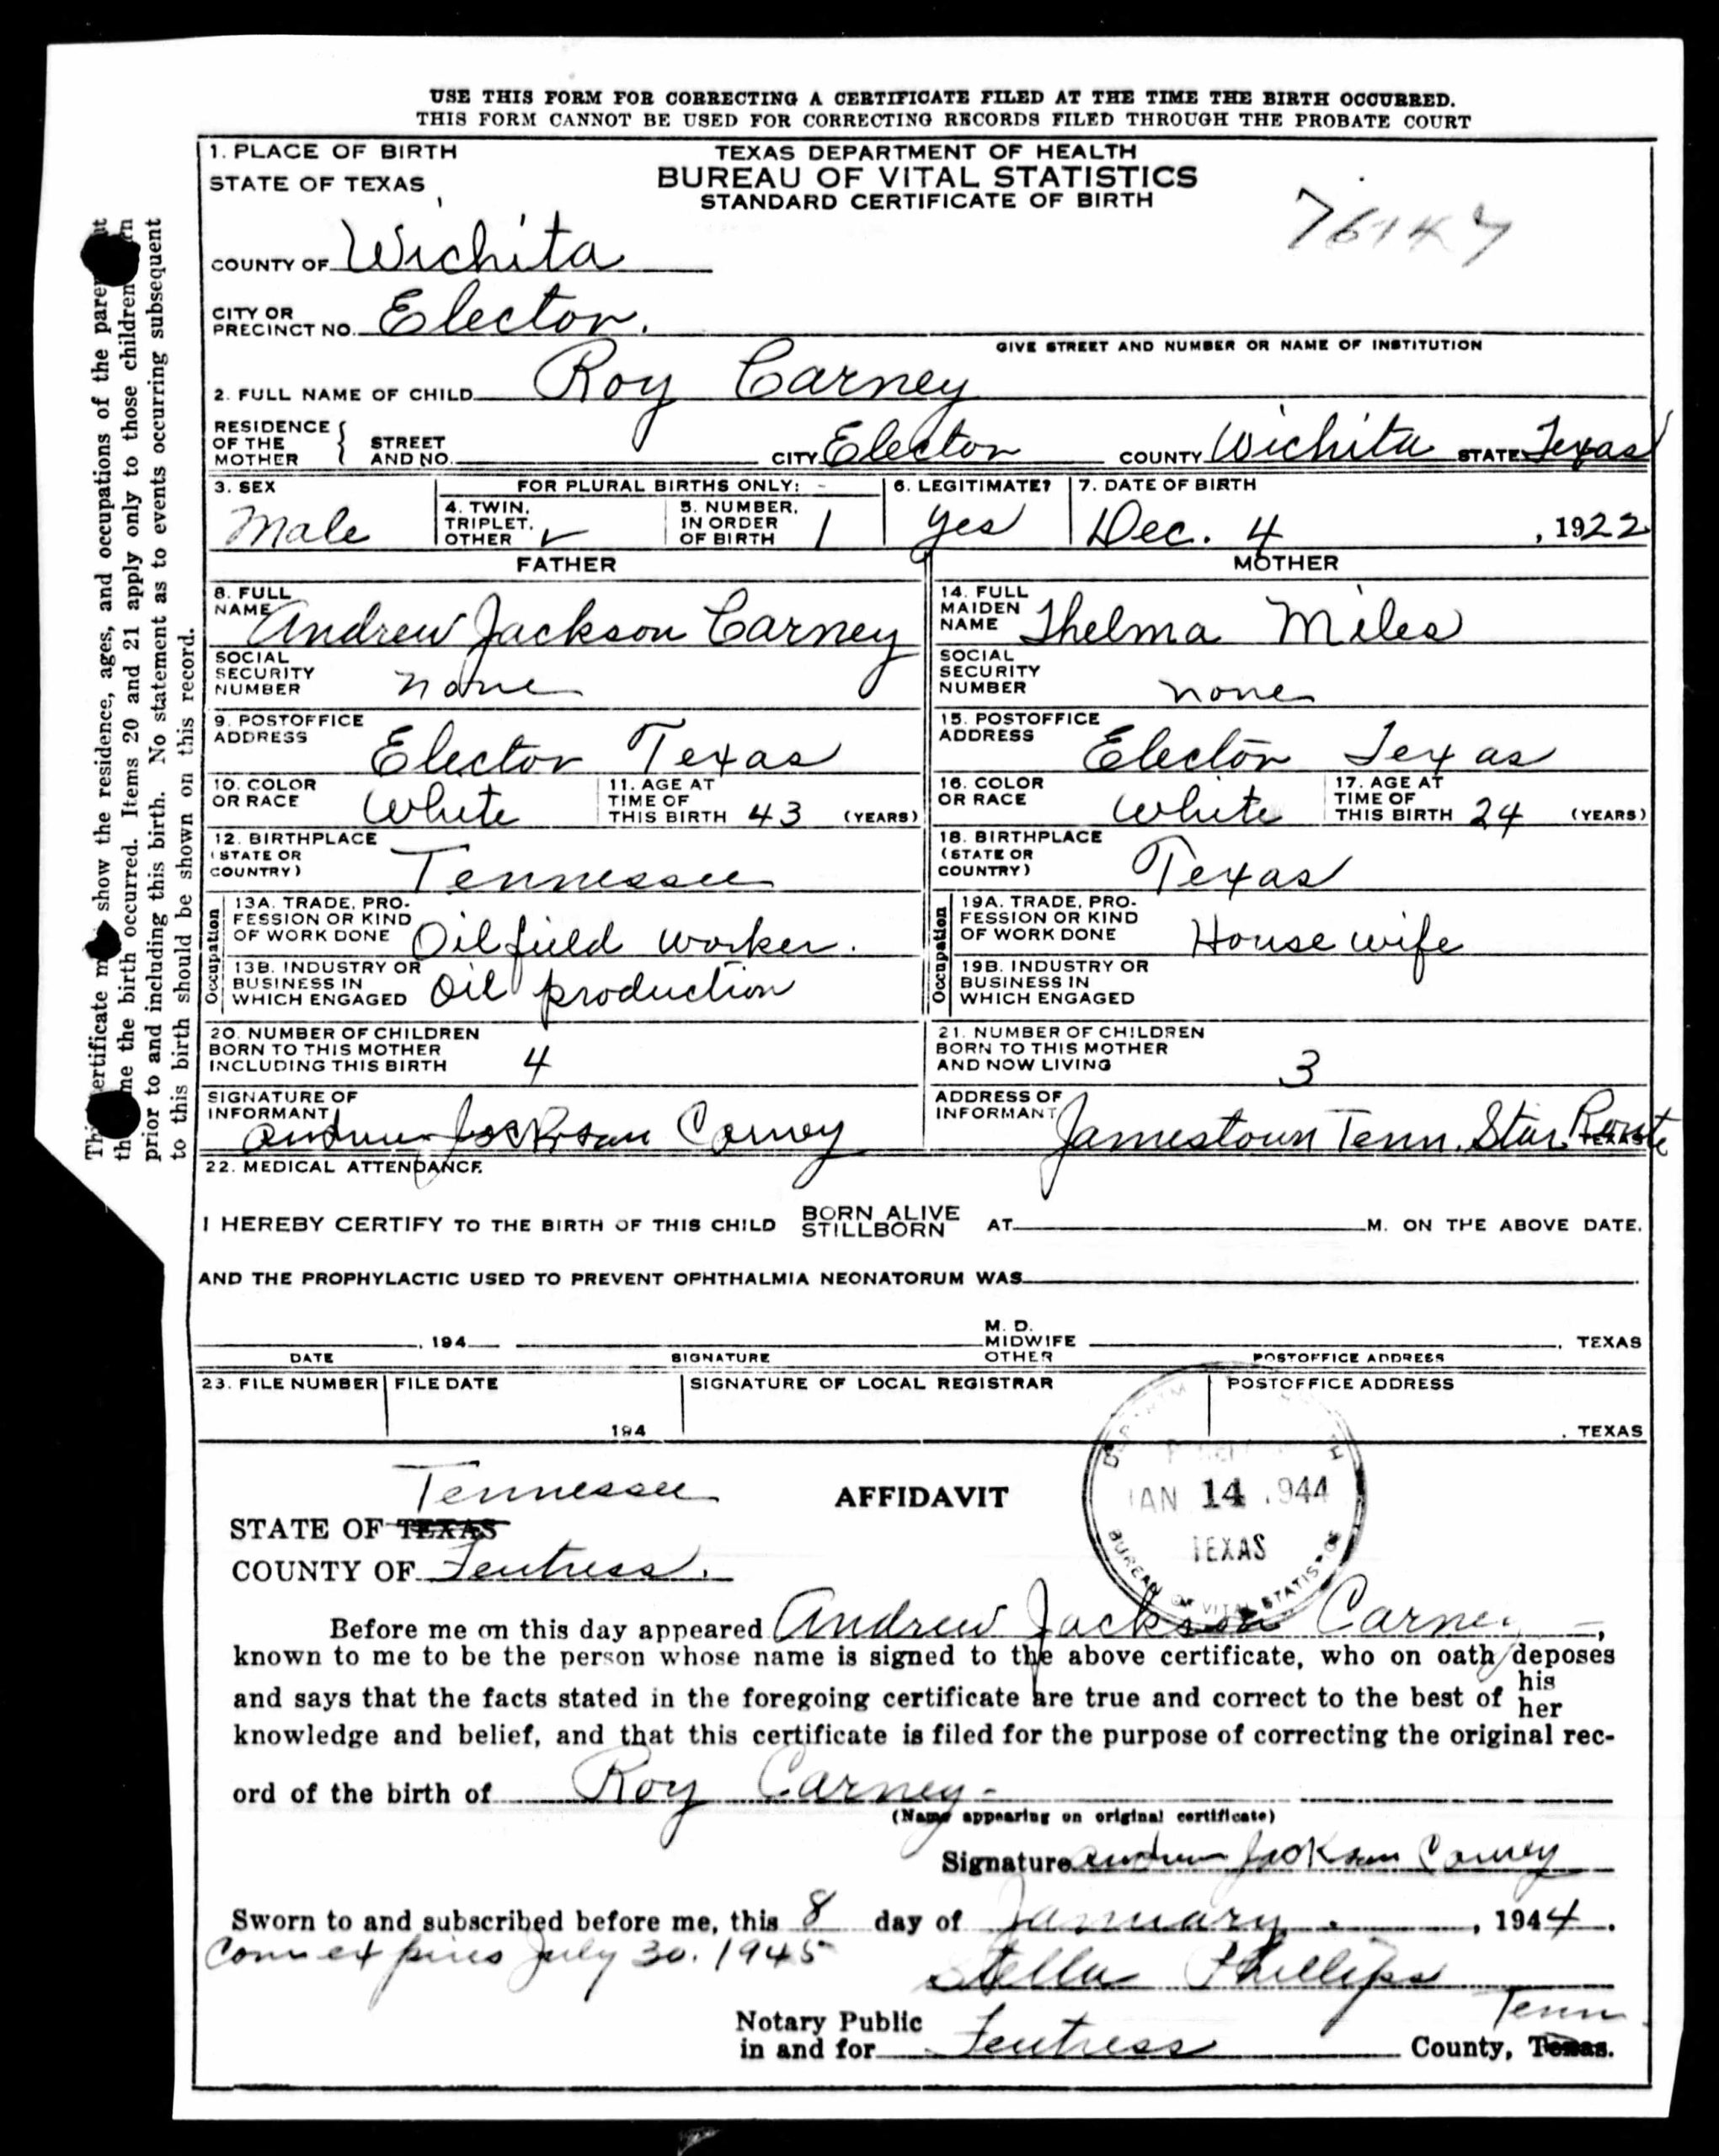 USE THIS FORM FOR CORRECTING A CERTIFICATE FILED AT THE TIME THE BIRTH OCCURRED.
THIS FORM CANNOT BE USED FOR CORRECTING RECORDS FILED THROUGH THE PROBATE COURT
1. PLACE OF BIRTH
STATE OF TEXAS
TEXAS DEPARTMENT OF HEALTH
BUREAU OF VITAL STATISTICS
STANDARD CERTIFICATE OF BIRTH
COUNTY OF Wichita
CITY OR PRECINCT NO. Elector.
GIVE STREET AND NUMBER OR NAME OF INSTITUTION
2. FULL NAME OF CHILD Roy Carney
RESIDENCE OF THE MOTHER { STREET AND NO. CITY Elector COUNTY Wichita STATE Texas
3. SEX Male
FOR PLURAL BIRTHS ONLY:
4. TWIN, TRIPLET, OTHER
5. NUMBER, IN ORDER OF BIRTH 1
6. LEGITIMATE? yes
7. DATE OF BIRTH Dec. 4, 1922
FATHER
8. FULL NAME Andrew Jackson Carney
SOCIAL SECURITY NUMBER none
9. POSTOFFICE ADDRESS Elector Texas
10. COLOR OR RACE White
11. AGE AT TIME OF THIS BIRTH 43 (YEARS)
12. BIRTHPLACE (STATE OR COUNTRY) Tennessee
Occupation
13A. TRADE, PROFESSION OR KIND OF WORK DONE Oilfield worker.
13B. INDUSTRY OR BUSINESS IN WHICH ENGAGED Oil production
MOTHER
14. FULL MAIDEN NAME Thelma Miles
SOCIAL SECURITY NUMBER none
15. POSTOFFICE ADDRESS Elector Texas
16. COLOR OR RACE White
17. AGE AT TIME OF THIS BIRTH 24 (YEARS)
18. BIRTHPLACE (STATE OR COUNTRY) Texas
Occupation
19A. TRADE, PROFESSION OR KIND OF WORK DONE House wife
19B. INDUSTRY OR BUSINESS IN WHICH ENGAGED
20. NUMBER OF CHILDREN BORN TO THIS MOTHER INCLUDING THIS BIRTH 4
21. NUMBER OF CHILDREN BORN TO THIS MOTHER AND NOW LIVING 3
SIGNATURE OF INFORMANT Andrew Jackson Carney
ADDRESS OF INFORMANT Jamestown Tenn. Star Route TEXAS
22. MEDICAL ATTENDANCE
I HEREBY CERTIFY TO THE BIRTH OF THIS CHILD BORN ALIVE STILLBORN AT M. ON THE ABOVE DATE.
AND THE PROPHYLACTIC USED TO PREVENT OPHTHALMIA NEONATORUM WAS
, 194 M. D. MIDWIFE OTHER , TEXAS
DATE SIGNATURE POSTOFFICE ADDRESS
23. FILE NUMBER FILE DATE SIGNATURE OF LOCAL REGISTRAR POSTOFFICE ADDRESS
194 , TEXAS
JAN 14 1944
TEXAS
BUREAU OF VITAL STATISTICS
AFFIDAVIT
Tennessee
STATE OF TEXAS
COUNTY OF Fentress.
Before me on this day appeared Andrew Jackson Carney,
known to me to be the person whose name is signed to the above certificate, who on oath deposes
and says that the facts stated in the foregoing certificate are true and correct to the best of his her
knowledge and belief, and that this certificate is filed for the purpose of correcting the original rec-
ord of the birth of Roy Carney-
(Name appearing on original certificate)
Signature Andrew Jackson Carney
Sworn to and subscribed before me, this 8 day of January, 1944.
Com expires July 30. 1945
Stella Phillips
Notary Public in and for Fentress County, Texas. Tenn
This certificate show the residence, ages, and occupations of the
the birth occurred. Items 20 and 21 apply only to those children
prior to and including this birth. No statement as to events occurring subsequent
to this birth should be shown on this record.